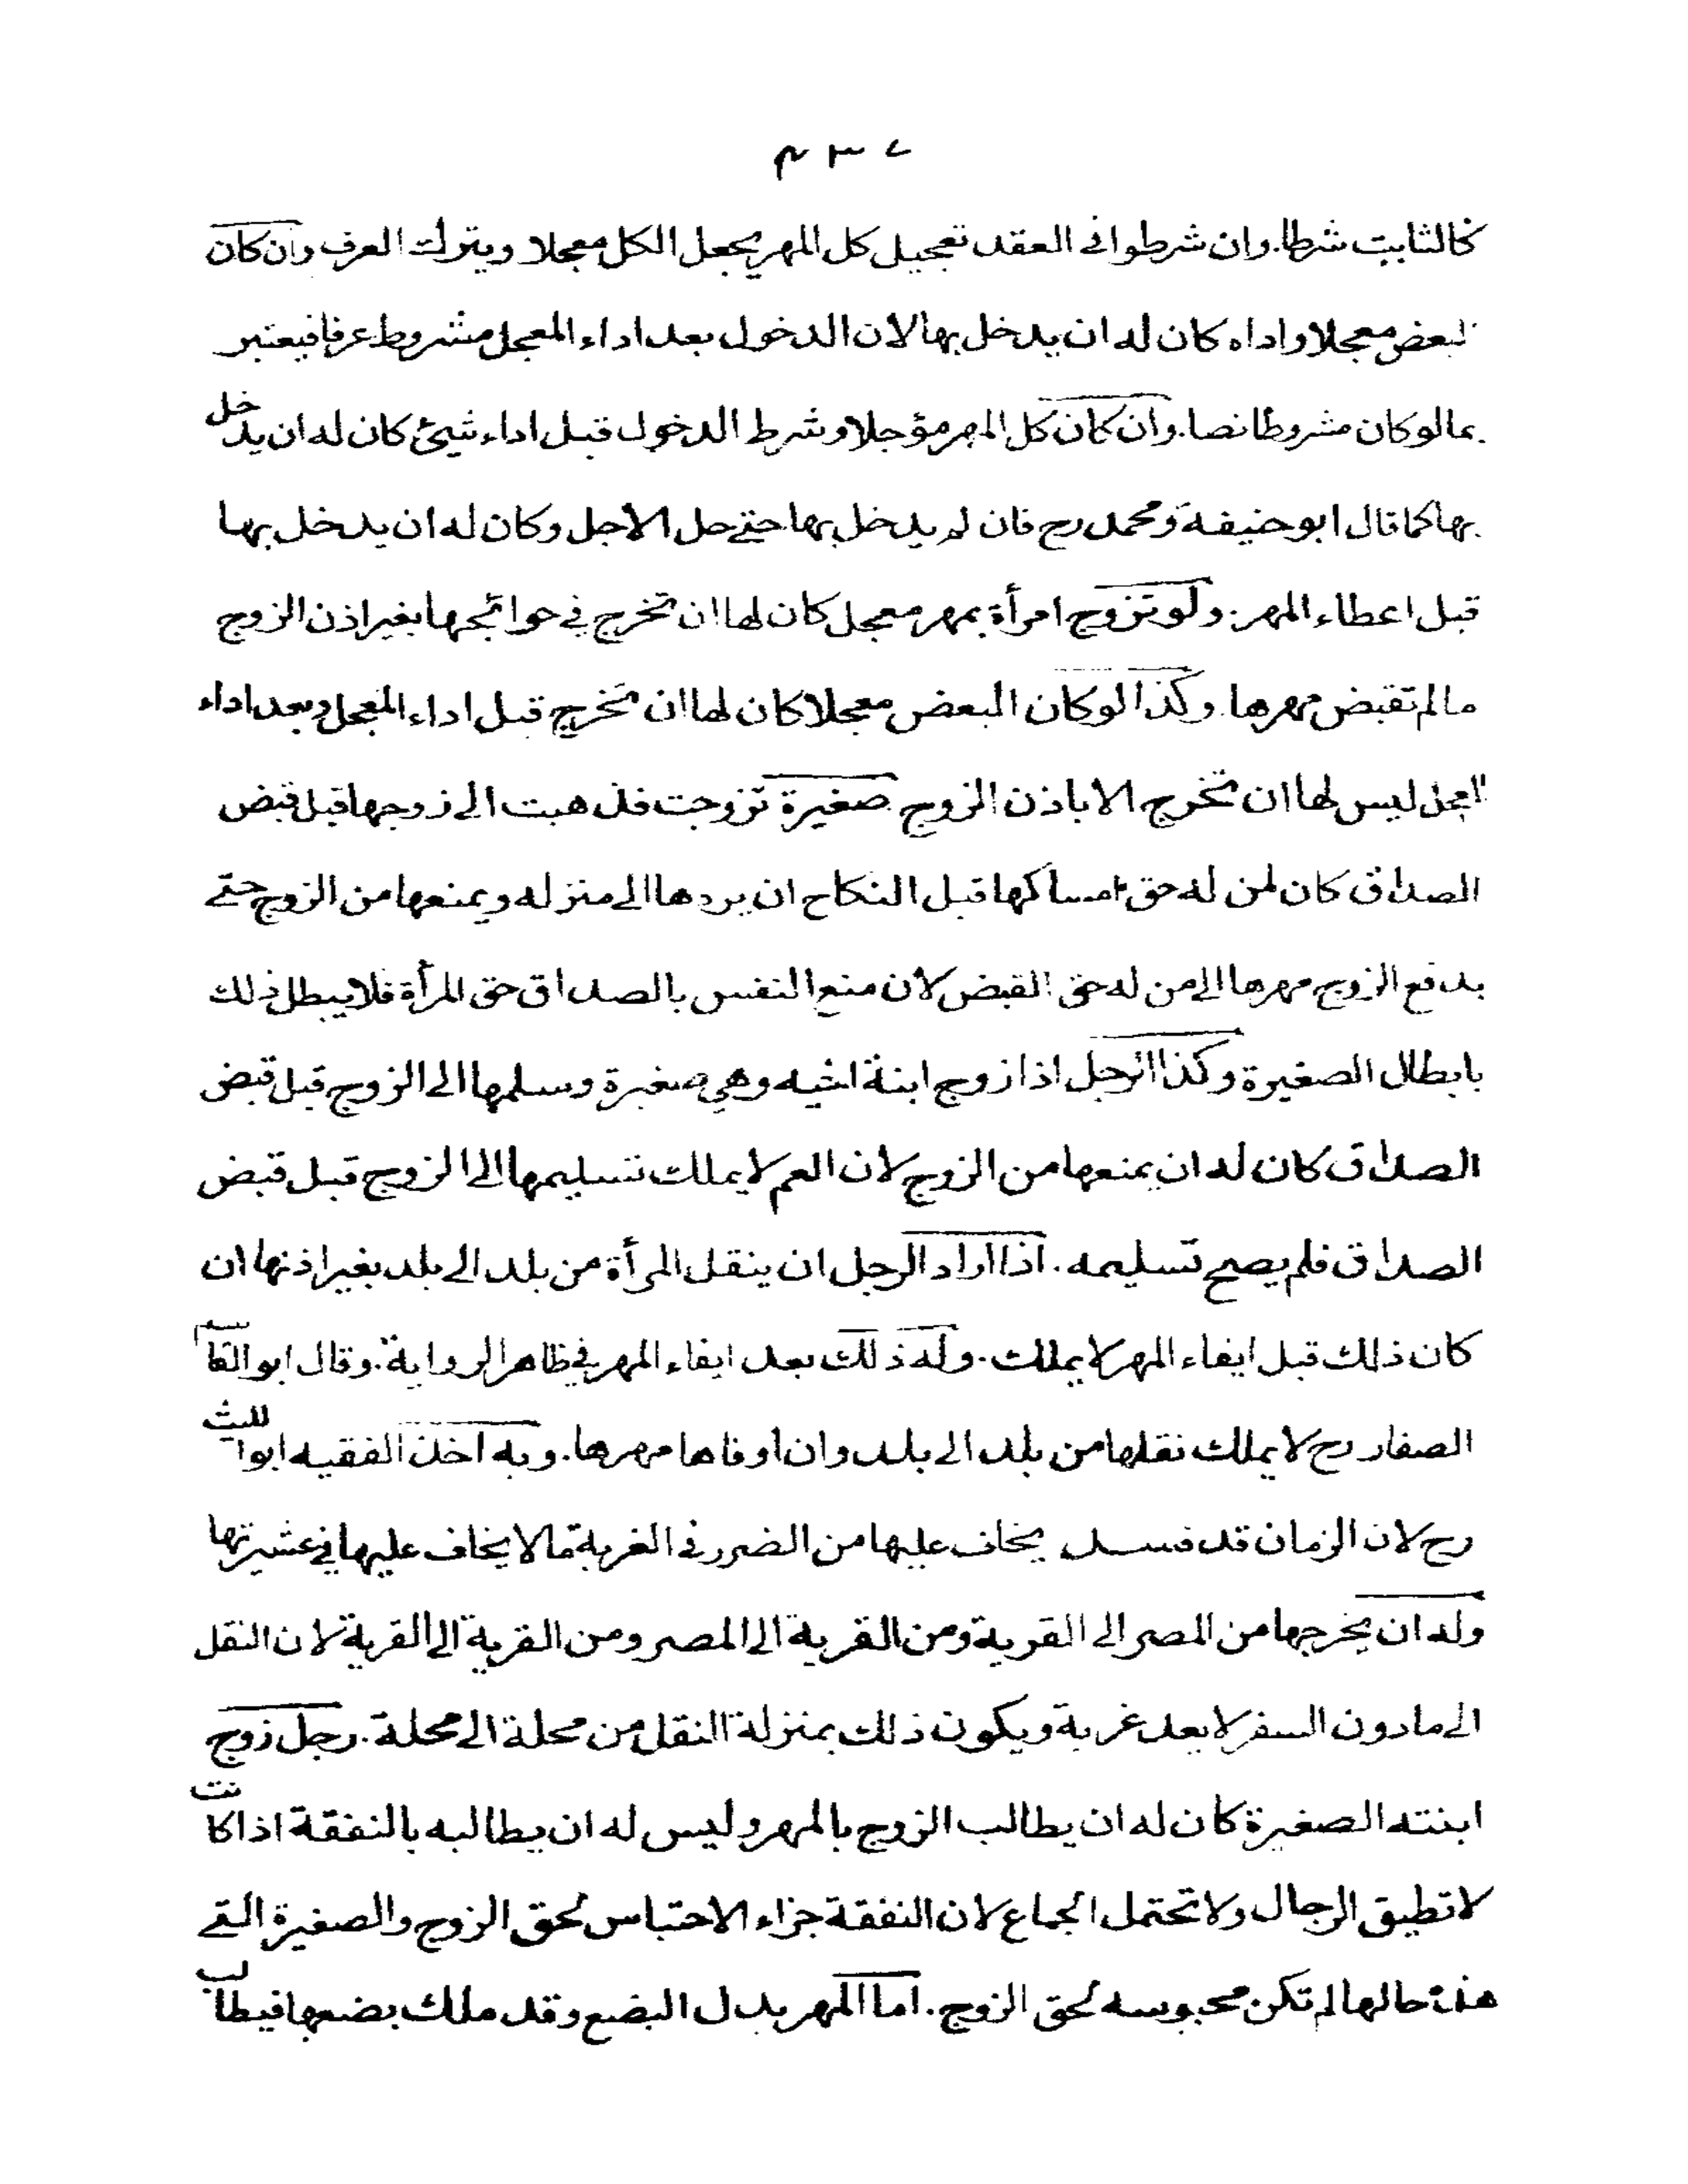 كالثابت شرطا. وان شرطوا فى العقد تعجيل كل المهر يجعل الكل معجلا ويترك العرف وان كان
البعض معجلا واداه كان له ان يدخل بها لان الدخول بعد اداء المعجل مشروط عرفا فيعتبر
بما لو كان مشروطا نصا. وان كان كل المهر مؤجلا وشرط الدخول قبل اداء شيئ كان له ان يدخل
بها كما قال ابو حنيفة ومحمد رح فان لم يدخل بها حتے حل الاجل وكان له ان يدخل بها
قبل اعطاء المهر. ولو تزوج امرأة بمهر معجل كان لها ان تخرج في حوائجها بغير اذن الزوج
مالم تقبض مهرها. وكذا لو كان البعض معجلا كان لها ان تخرج قبل اداء المعجل وبعد اداء
المعجل ليس لها ان تخرج الا باذن الزوج. صغيرة تزوجت فذهبت الى زوجها قبل قبض
الصداق كان لمن له حق امساكها قبل النكاح ان يردها الى منزله ويمنعها من الزوج حتے
يدفع الزوج مهرها الى من له حق القبض لان منع النفس بالصداق حق المرأة فلا يبطل ذلك
بابطال الصغيرة وكذا الرجل اذا زوج ابنة اخيه وهي صغيرة وسلمها الى الزوج قبل قبض
الصداق كان له ان يمنعها من الزوج لان العم لا يملك تسليمها الى الزوج قبل قبض
الصداق فلم يصح تسليمه. اذا اراد الرجل ان ينقل المرأة من بلد الى بلد بغير اذنها ان
كان ذلك قبل ايفاء المهر لا يملك. وله ذلك بعد ايفاء المهر في ظاهر الرواية. وقال ابو القاسم
الصفار رح لا يملك نقلها من بلد الى بلد وان اوفاها مهرها. وبه اخذ الفقيه ابو الليث
رح لان الزمان قد فسد يخاف عليها من الضرر فى الغربة مالا يخاف عليها في عشيرتها
وله ان يخرجها من المصر الى القرية ومن القرية الى المصر ومن القرية الى القرية لان النقل
الى مادون السفر لا يعد غربة ويكون ذلك بمنزلة النقل من محلة الى محلة. رجل زوج
ابنته الصغيرة كان له ان يطالب الزوج بالمهر وليس له ان يطالبه بالنفقة اذا كانت
لا تطيق الرجال ولا تحتمل الجماع لان النفقة جزاء الاحتباس لحق الزوج والصغيرة التے
هذه حالها لم تكن محبوسه لحق الزوج. اما المهر بدل البضع وقد ملك بضعها فيطالب